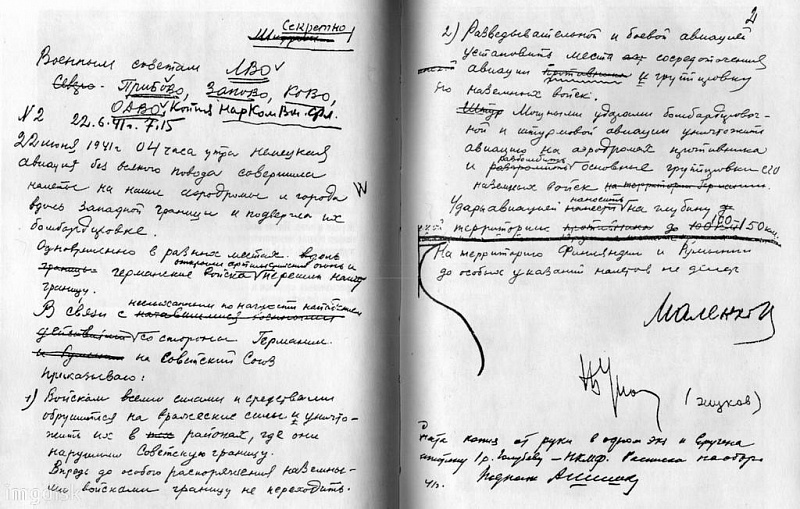 Секретно
Шифром
Военным советам ЛВО
Прибово, Запово, Ково,
ОдВО, Копия НарКомВм. Фл.
N 2 22.6.41г. 7.15
22 июня 1941г 04 часа утра немецкая
авиация без всякого повода совершила
налеты на наши аэродромы и города
вдоль западной границы и подвергла их
бомбардировке.
Одновременно в разных местах
открыли артиллерийский огонь и
германские войска перешли нашу
границу.
неслыханным по наглости нападением
В связи с
со стороны Германии
на Советский Союз
приказываю:
1) Войскам всеми силами и средствами
обрушиться на вражеские силы и уничто-
жить их в районах, где они
нарушили Советскую границу.
Впредь до особого распоряжения наземны-
ми войсками границу не переходить.
imgdisk
2
2) Разведывательной и боевой авиацией
установить места сосредоточения
авиации противника и группировку
его наземных войск.
Мощными ударами бомбардировоч-
ной и штурмовой авиации уничтожить
авиацию на аэродромах противника
разбомбить
и основные группировки его
наземных войск
наносить
Удары авиацией на глубину
территории до 100-150 км.
На территорию Финляндии и Румынии
до особых указаний налетов не делать
Маленков
(Жуков)
от руки в одном экз и вручена